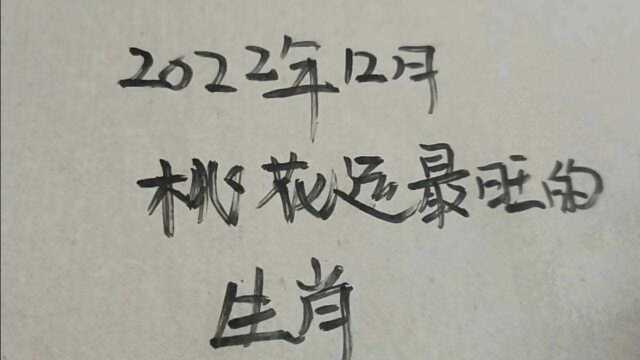 2022年12月
桃花运最旺的
生肖